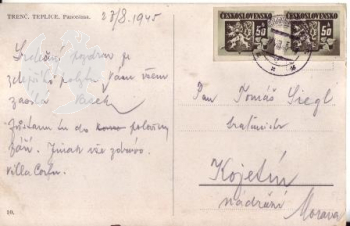 TRENČ. TEPLICE. Panoráma.
23/8. 1945
Srdečný pozdrav ze
Vám všem
zasílá
Zůstanu tu do poloviny
září. Jinak vše zdrávo.
Villa
10.
ČESKOSLOVENSKO
ČESKOSLOVENSKO
50
50
Pan Tomáš Siegl
Kojetín
nádraží
Morava